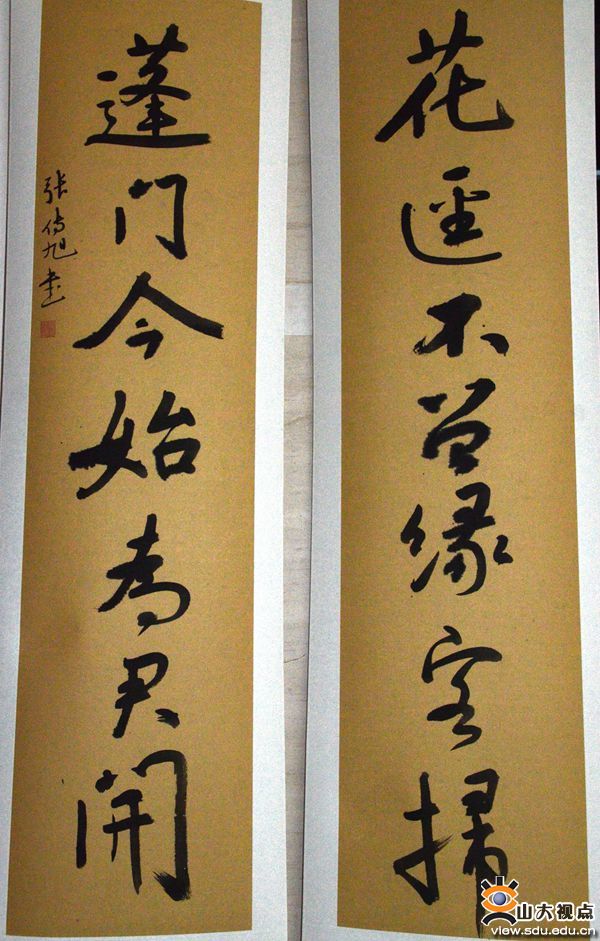 花逕不曾缘客掃
蓬门今始为君開
张传旭书
山大视点
view.sdu.edu.cn